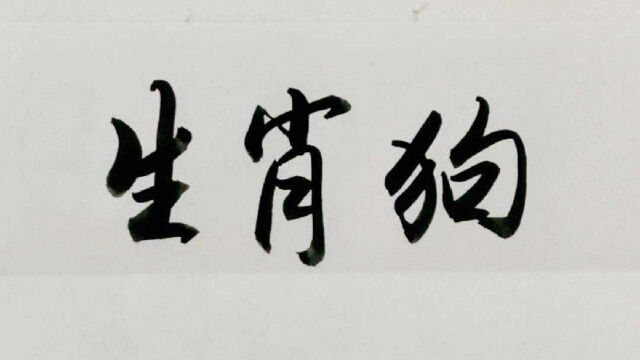 生肖狗